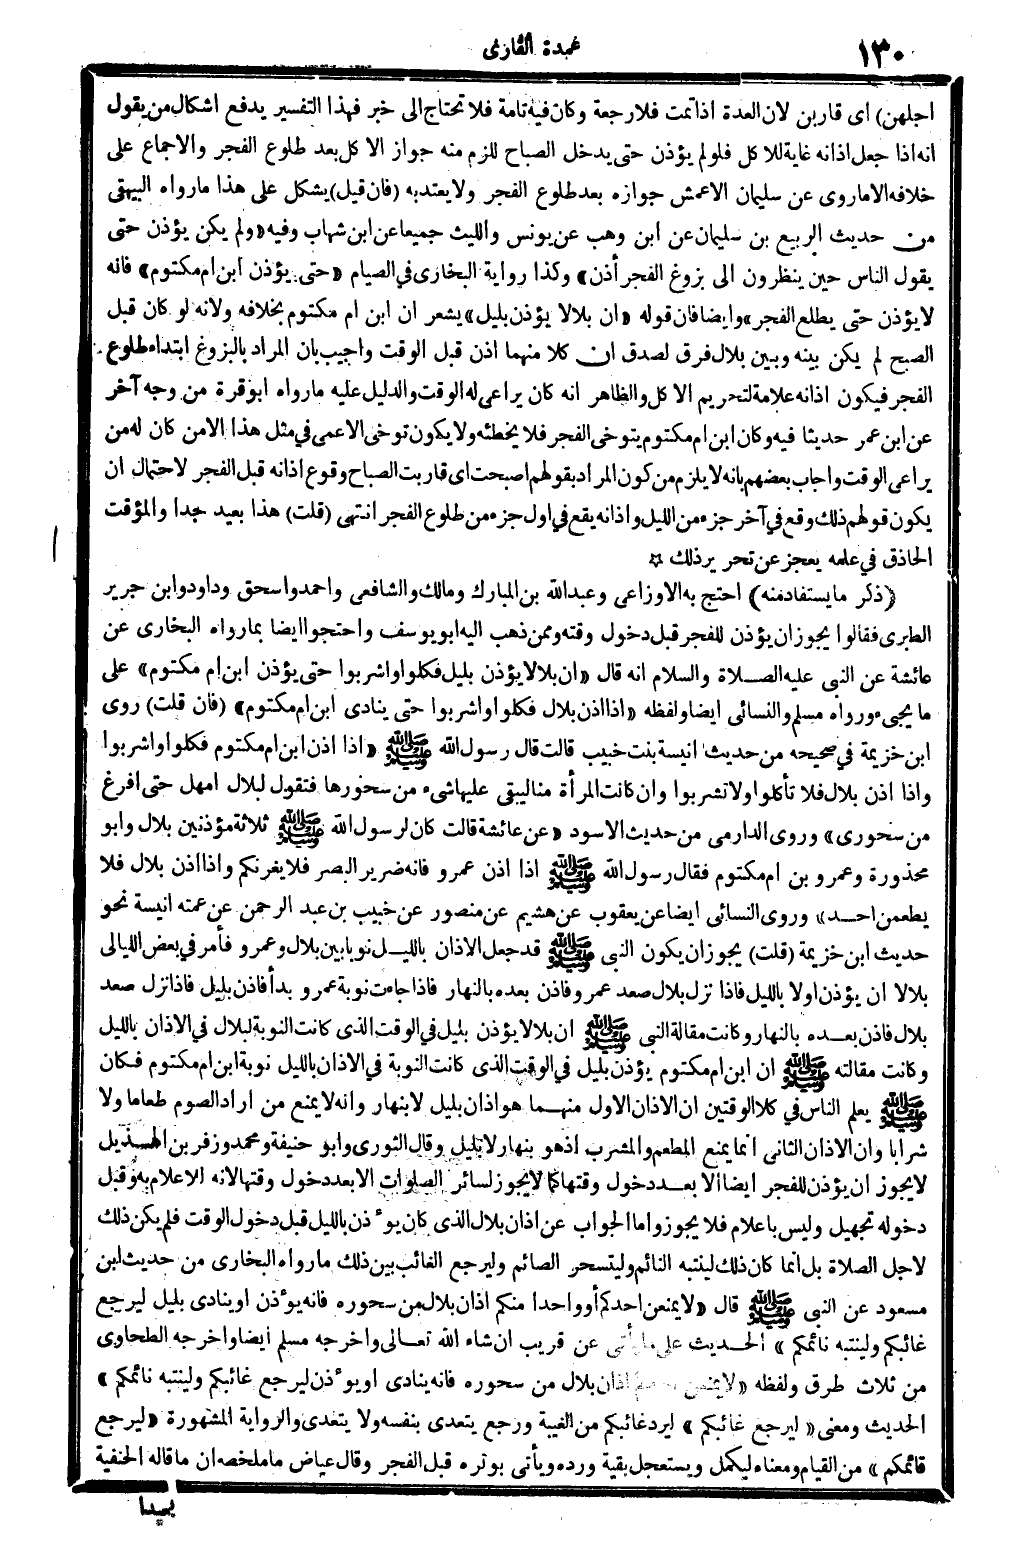 ١٣٠
عمدة القارى
اجلهن) أى قاربن لان العدة اذا تمت فلا رجعة وكان فيه تامة فلا تحتاج الى خبر فهذا التفسير يدفع اشكال من يقول
انه اذا جعل اذانه غاية للاكل فلو لم يؤذن حتى يدخل الصباح للزم منه جواز الاكل بعد طلوع الفجر والاجماع على
خلافه الا ما روى عن سليمان الاعمش جوازه بعد طلوع الفجر ولا يعتد به (فان قيل) يشكل على هذا ما رواه البيهقى
من حديث الربيع بن سليمان عن ابن وهب عن يونس والليث جميعا عن ابن شهاب وفيه «ولم يكن يؤذن حتى
يقول الناس حين ينظرون الى بزوغ الفجر أذن» وكذا رواية البخارى في الصيام «حتى يؤذن ابن ام مكتوم» فانه
لا يؤذن حتى يطلع الفجر» وايضا فان قوله «ان بلالا يؤذن بليل» يشعر ان ابن ام مكتوم بخلافه ولانه لو كان قبل
الصبح لم يكن بينه وبين بلال فرق لصدق ان كلا منهما اذن قبل الوقت واجيب بان المراد بالبزوغ ابتداء طلوع
الفجر فيكون اذانه علامة لتحريم الاكل والظاهر انه كان يراعى له الوقت والدليل عليه ما رواه ابو قرة من وجه آخر
عن ابن عمر حديثا فيه وكان ابن ام مكتوم يتوخى الفجر فلا يخطئه ولا يكون توخى الاعمى في مثل هذا الا من كان له من
يراعى الوقت واجاب بعضهم بانه لا يلزم من كون المراد بقولهم اصبحت اى قاربت الصباح وقوع اذانه قبل الفجر لاحتمال ان
يكون قولهم ذلك وقع في آخر جزء من الليل واذانه يقع في اول جزء من طلوع الفجر انتهى (قلت) هذا بعيد جدا والمؤقت
الحاذق في علمه يعجز عن تحرير ذلك ☆
(ذكر ما يستفاد منه) احتج به الاوزاعى وعبدالله بن المبارك ومالك والشافعى واحمد واسحق وداود وابن جرير
الطبرى فقالوا يجوز ان يؤذن للفجر قبل دخول وقته وممن ذهب اليه ابو يوسف واحتجوا ايضا بما رواه البخارى عن
عائشة عن النبى عليه الصلاة والسلام انه قال «ان بلالا يؤذن بليل فكلوا واشربوا حتى يؤذن ابن ام مكتوم» على
ما يجىء ورواه مسلم والنسائى ايضا ولفظه «اذا اذن بلال فكلوا واشربوا حتى ينادى ابن ام مكتوم» (فان قلت) روى
ابن خزيمة في صحيحه من حديث انيسة بنت خبيب قالت قال رسول الله ﷺ «اذا اذن ابن ام مكتوم فكلوا واشربوا
واذا اذن بلال فلا تأكلوا ولا تشربوا وان كانت المرأة منا ليبقى عليها شىء من سحورها فتقول لبلال امهل حتى افرغ
من سحورى» وروى الدارمى من حديث الاسود «عن عائشة قالت كان لرسول الله ﷺ ثلاثة مؤذنين بلال وابو
محذورة وعمرو بن ام مكتوم فقال رسول الله ﷺ اذا اذن عمرو فانه ضرير البصر فلا يغرنكم واذا اذن بلال فلا
يطعمن احد» وروى النسائى ايضا عن يعقوب عن هشيم عن منصور عن خبيب بن عبد الرحمن عن عمته انيسة نحو
حديث ابن خزيمة (قلت) يجوز ان يكون النبى ﷺ قد جعل الاذان بالليل نوبا بين بلال وعمرو فأمر في بعض الليالى
بلالا ان يؤذن اولا بالليل فاذا نزل بلال صعد عمرو فاذن بعده بالنهار فاذا جاءت نوبة عمرو بدأ فاذن بليل فاذا نزل صعد
بلال فاذن بعده بالنهار وكانت مقالة النبى ﷺ ان بلالا يؤذن بليل في الوقت الذى كانت النوبة لبلال في الاذان بالليل
وكانت مقالته ﷺ ان ابن ام مكتوم يؤذن بليل في الوقت الذى كانت النوبة في الاذان بالليل نوبة ابن ام مكتوم فكان
ﷺ يعلم الناس في كلا الوقتين ان الاذان الاول منهما هو اذان بليل لا بنهار وانه لا يمنع من اراد الصوم طعاما ولا
شرابا وان الاذان الثانى انما يمنع المطعم والمشرب اذ هو بنهار لا بليل وقال الثورى وابو حنيفة ومحمد وزفر بن الهذيل
لا يجوز ان يؤذن للفجر ايضا الا بعد دخول وقتها كما لا يجوز لسائر الصلوات الا بعد دخول وقتها لانه الاعلام به وقبل
دخوله تجهيل وليس باعلام فلا يجوز واما الجواب عن اذان بلال الذى كان يؤذن بالليل قبل دخول الوقت فلم يكن ذلك
لاجل الصلاة بل انما كان ذلك لينتبه النائم وليتسحر الصائم وليرجع الغائب بين ذلك ما رواه البخارى من حديث ابن
مسعود عن النبى ﷺ قال «لا يمنعن احدكم أو واحدا منكم اذان بلال من سحوره فانه يؤذن او ينادى بليل ليرجع
غائبكم ولينتبه نائمكم» الحديث على ما يأتى عن قريب ان شاء الله تعالى واخرجه مسلم ايضا واخرجه الطحاوى
من ثلاث طرق ولفظه «لا يمنعن اذان بلال من سحوره فانه ينادى او يؤذن ليرجع غائبكم ولينتبه نائمكم»
الحديث ومعنى «ليرجع غائبكم» ليرد غائبكم من الغيبة ورجع يتعدى بنفسه ولا يتعدى والرواية المشهورة «ليرجع
قائمكم» من القيام ومعناه ليكمل ويستعجل بقية ورده ويأتى بوتره قبل الفجر وقال عياض ما ملخصه ان ما قاله الحنفية
بعيد